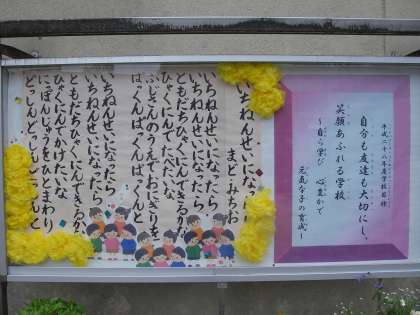 平成二十八年度学校目標
自分も友達も大切にし、
笑顔あふれる学校
～自ら学び 心豊かで
元気な子の育成～
いちねんせいにな
まどみちお
いちねんせいになったら
いちねんせいになったら
ともだちひゃくにんできるかな
ひゃくにんでたべたいな
ふじさんのうえでおにぎりを
ぱっくんぱっくんぱっくんと
いちねんせいになったら
いちねんせいになったら
ともだちひゃくにんできるかな
ひゃくにんでかけたいな
にっぽんじゅうをひとまわり
どっしんどっしんどっしんと